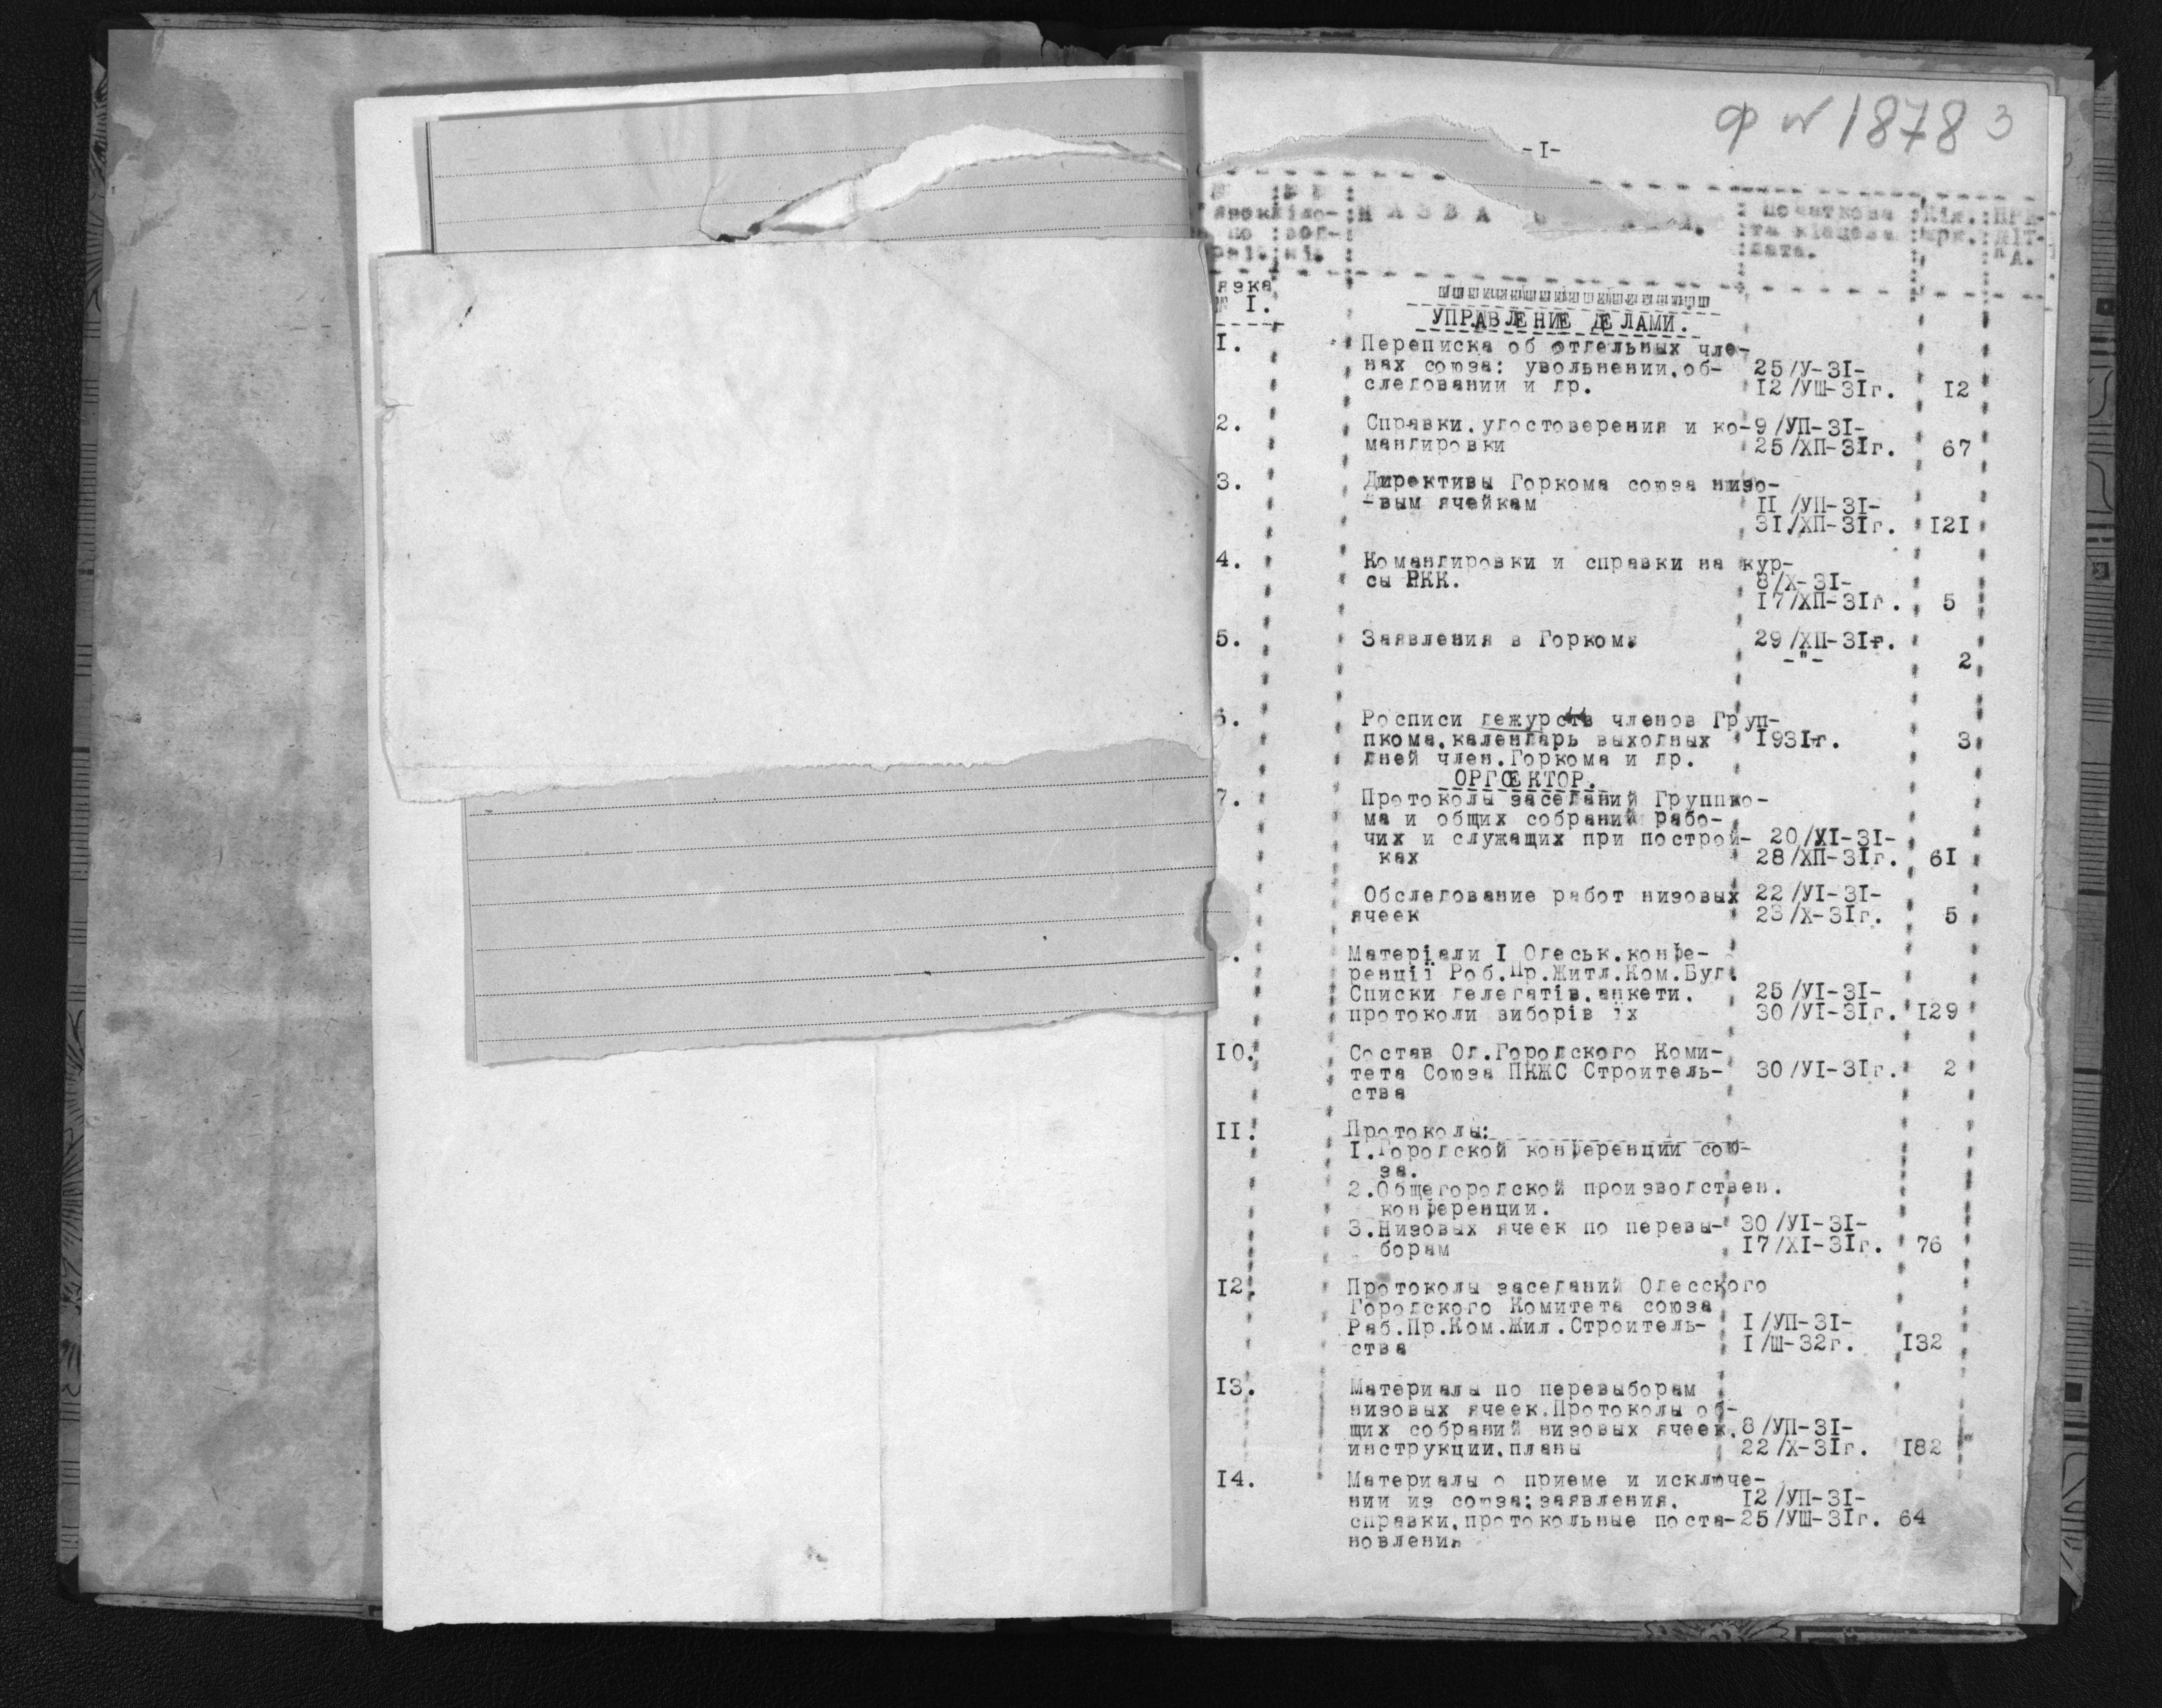 Ф № 1878 3
-I-
НАЗВА
початкова
та кінцева
дата.
№ I.
УПРАВЛЕНИЕ ДЕЛАМИ.
I. Переписка об отдельных чле-
нах союза: увольнении, об- 25/У-3I-
следовании и др. I2/УШ-3Iг. I2
2. Справки, удостоверения и ко- 9/УП-3I-
мандировки 25/ХП-3Iг. 67
3. Директивы Горкома союза низо-
-вым ячейкам II/УП-3I-
3I/ХП-3Iг. I2I
4. Командировки и справки на кур-
сы РКК. 8/Х-3I-
I7/ХП-3Iг. 5
5. Заявления в Горком. 29/ХП-3Iг.
-"- 2
6. Росписи дежурств членов Груп-
пкома, календарь выходных I93Iг. 3
дней член. Горкома и др.
ОРГСЕКТОР.
7. Протоколы заседаний Группко-
ма и общих собраний рабо-
чих и служащих при построй- 20/ХI-3I-
ках 28/ХП-3Iг. 6I
Обследование работ низовых 22/УI-3I-
ячеек 23/Х-3Iг. 5
Матеріали I Одеськ.конфе-
ренції Роб.Пр.Житл.Ком.Буд.
Списки делегатів, анкети, 25/УI-3I-
протоколи виборів їх 30/УI-3Iг. I29
I0. Состав Од.Городского Коми-
тета Союза ПКЖС Строитель- 30/УI-3Iг. 2
ства
II. Протоколы:
I.Городской конференции сою-
за.
2.Общегородской производствен.
конференции.
3.Низовых ячеек по перевы- 30/УI-3I-
борам I7/ХI-3Iг. 76
I2. Протоколы заседаний Одесского
Городского Комитета союза
Раб.Пр.Ком.Жил.Строитель- I/УП-3I-
ства I/Ш-32г. I32
I3. Материалы по перевыборам
низовых ячеек. Протоколы об-
щих собраний низовых ячеек, 8/УП-3I-
инструкции, планы 22/Х-3Iг. I82
I4. Материалы о приеме и исключе-
нии из союза: заявления, I2/УП-3I-
справки, протокольные поста- 25/УШ-3Iг. 64
новления